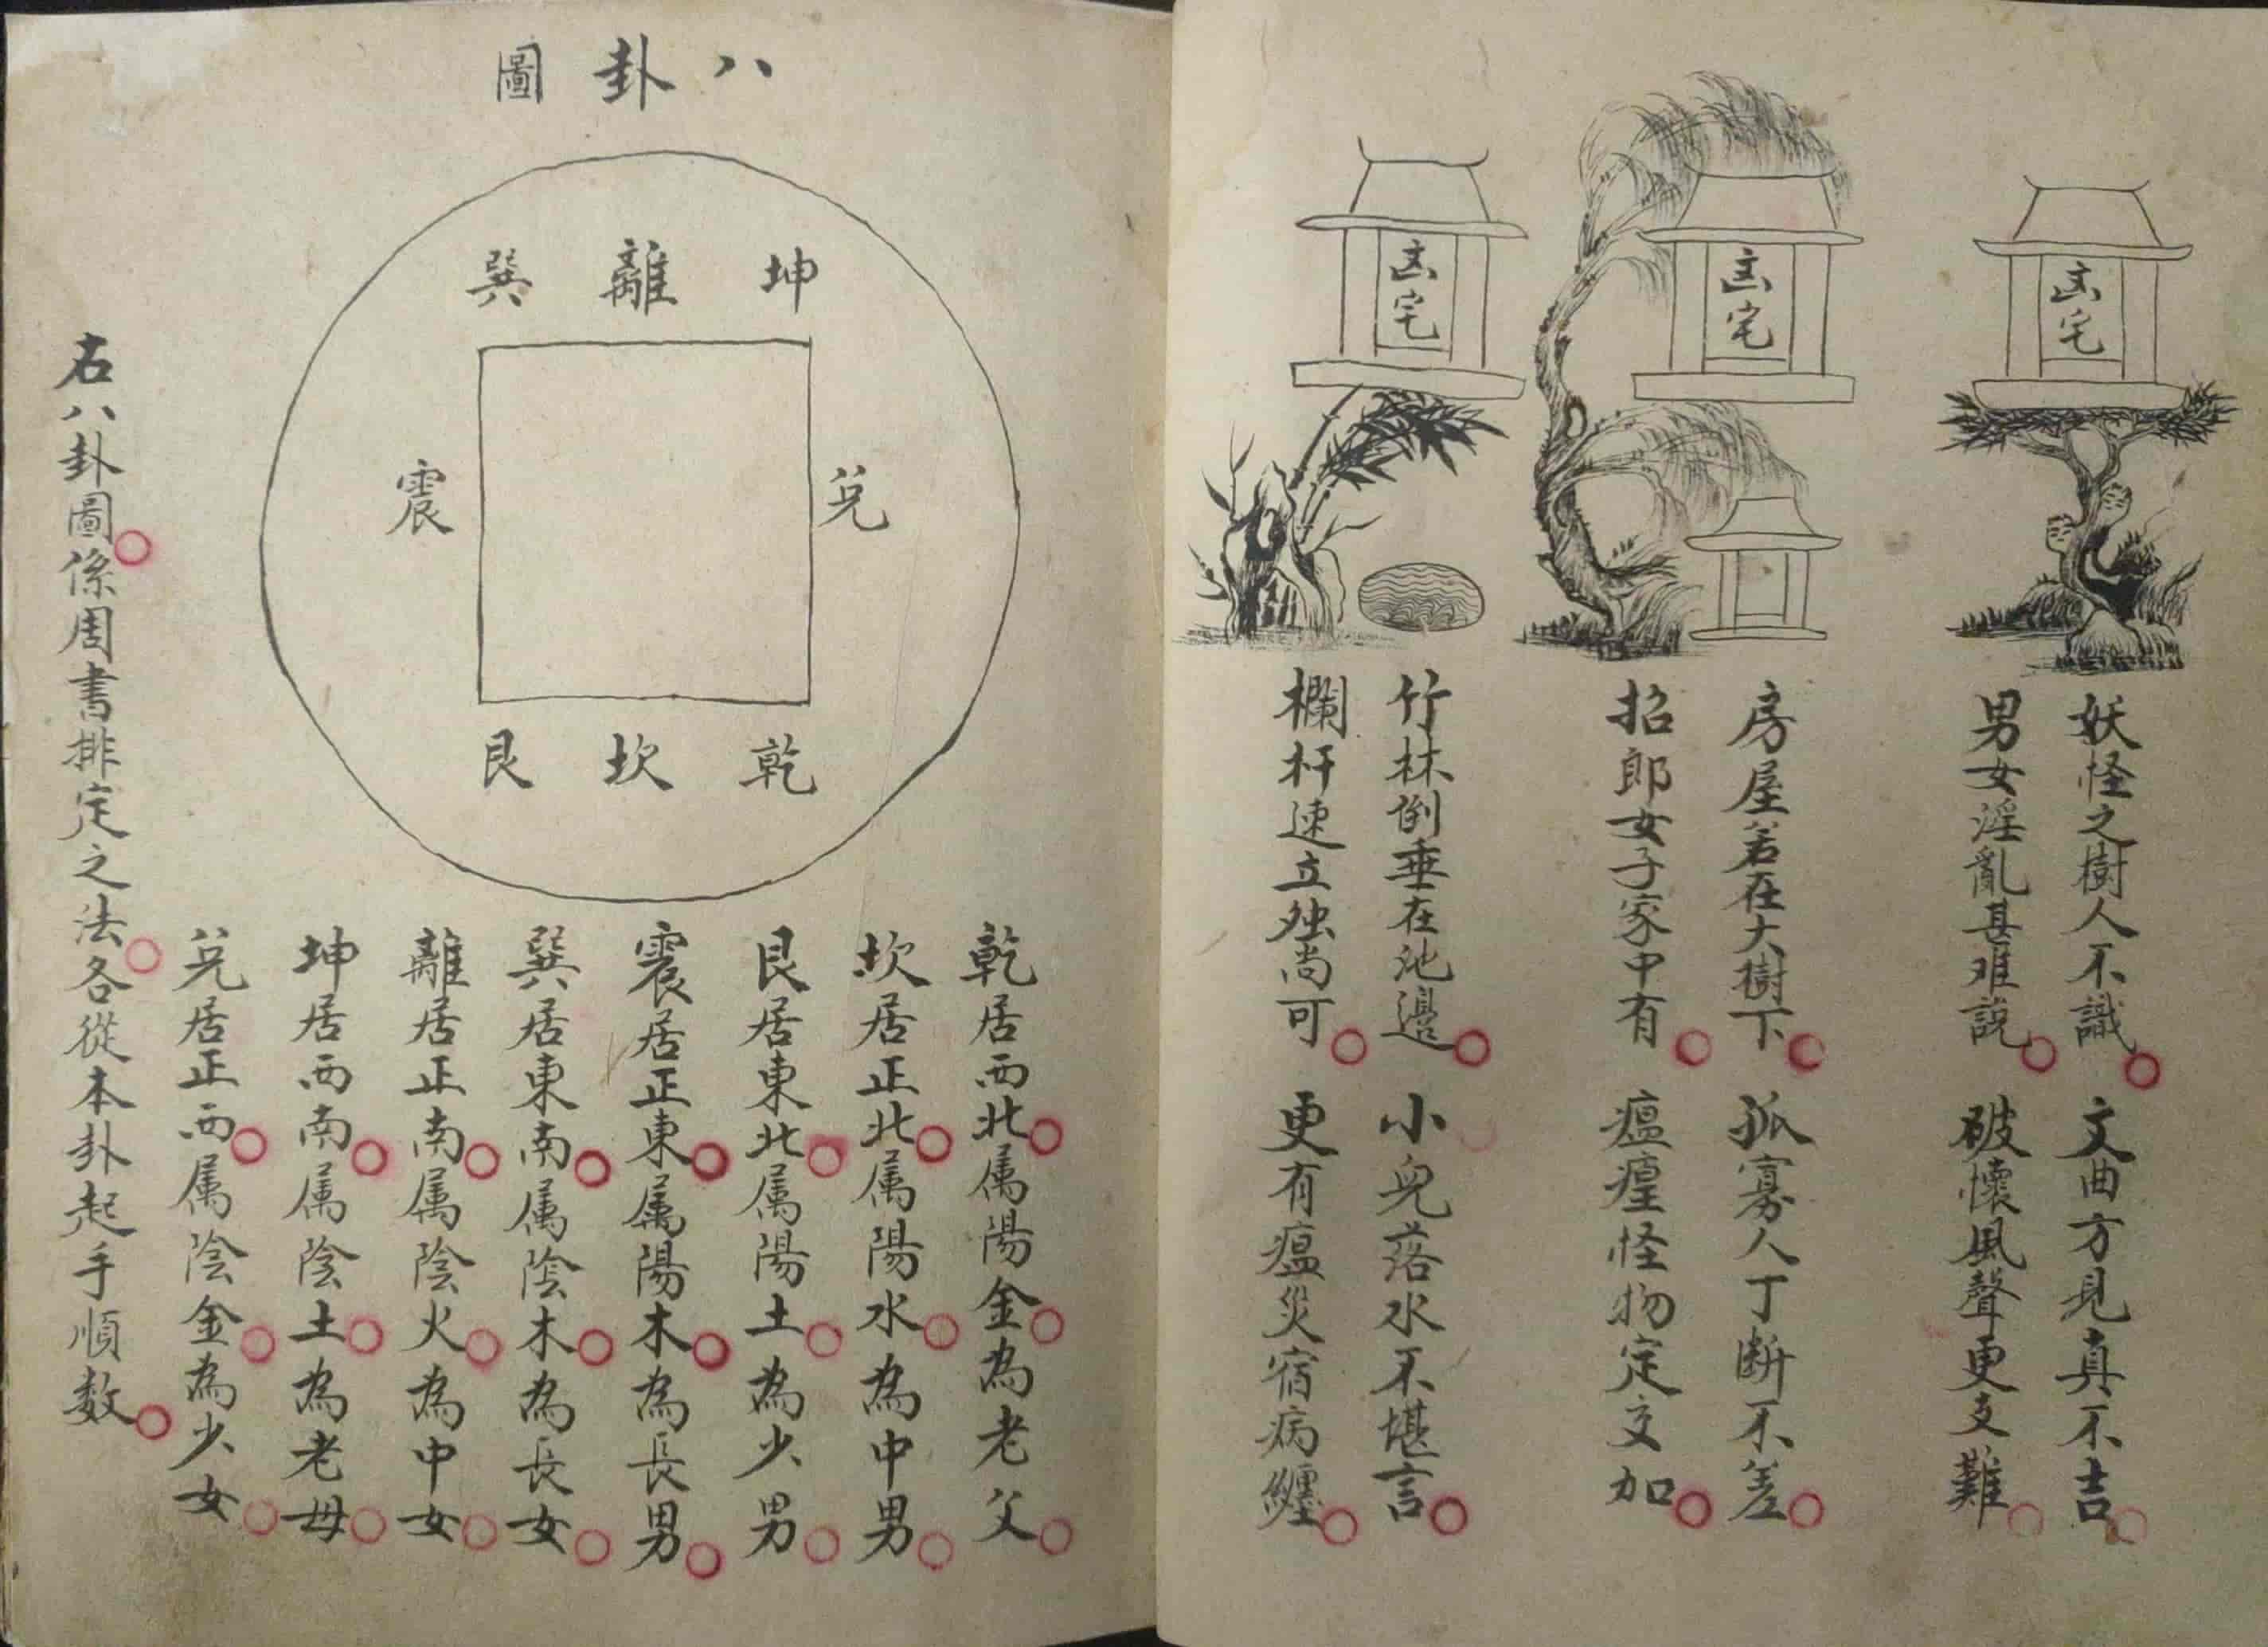 㐫宅
㐫宅
㐫宅
妖怪之樹人不識 文曲方見真不吉
男女淫亂甚难説 破懷風聲更支難
房屋若在大樹下 孤寡人丁断不差
招郎女子家中有 瘟㾮怪物定交加
竹林倒垂在池邊 小兒落水不堪言
欄杆速立独尚可 更有瘟災宿病纏
八卦圖
坤 離 巽
兌 震
乾 坎 艮
乾居西北属陽金為老父
坎居正北属陽水為中男
艮居東北属陽土為少男
震居正東属陽木為長男
巽居東南属陰木為長女
離居正南属陰火為中女
坤居西南属陰土為老母
兌居正西属陰金為少女
右八卦圖係周書排定之法各從本卦起手順数